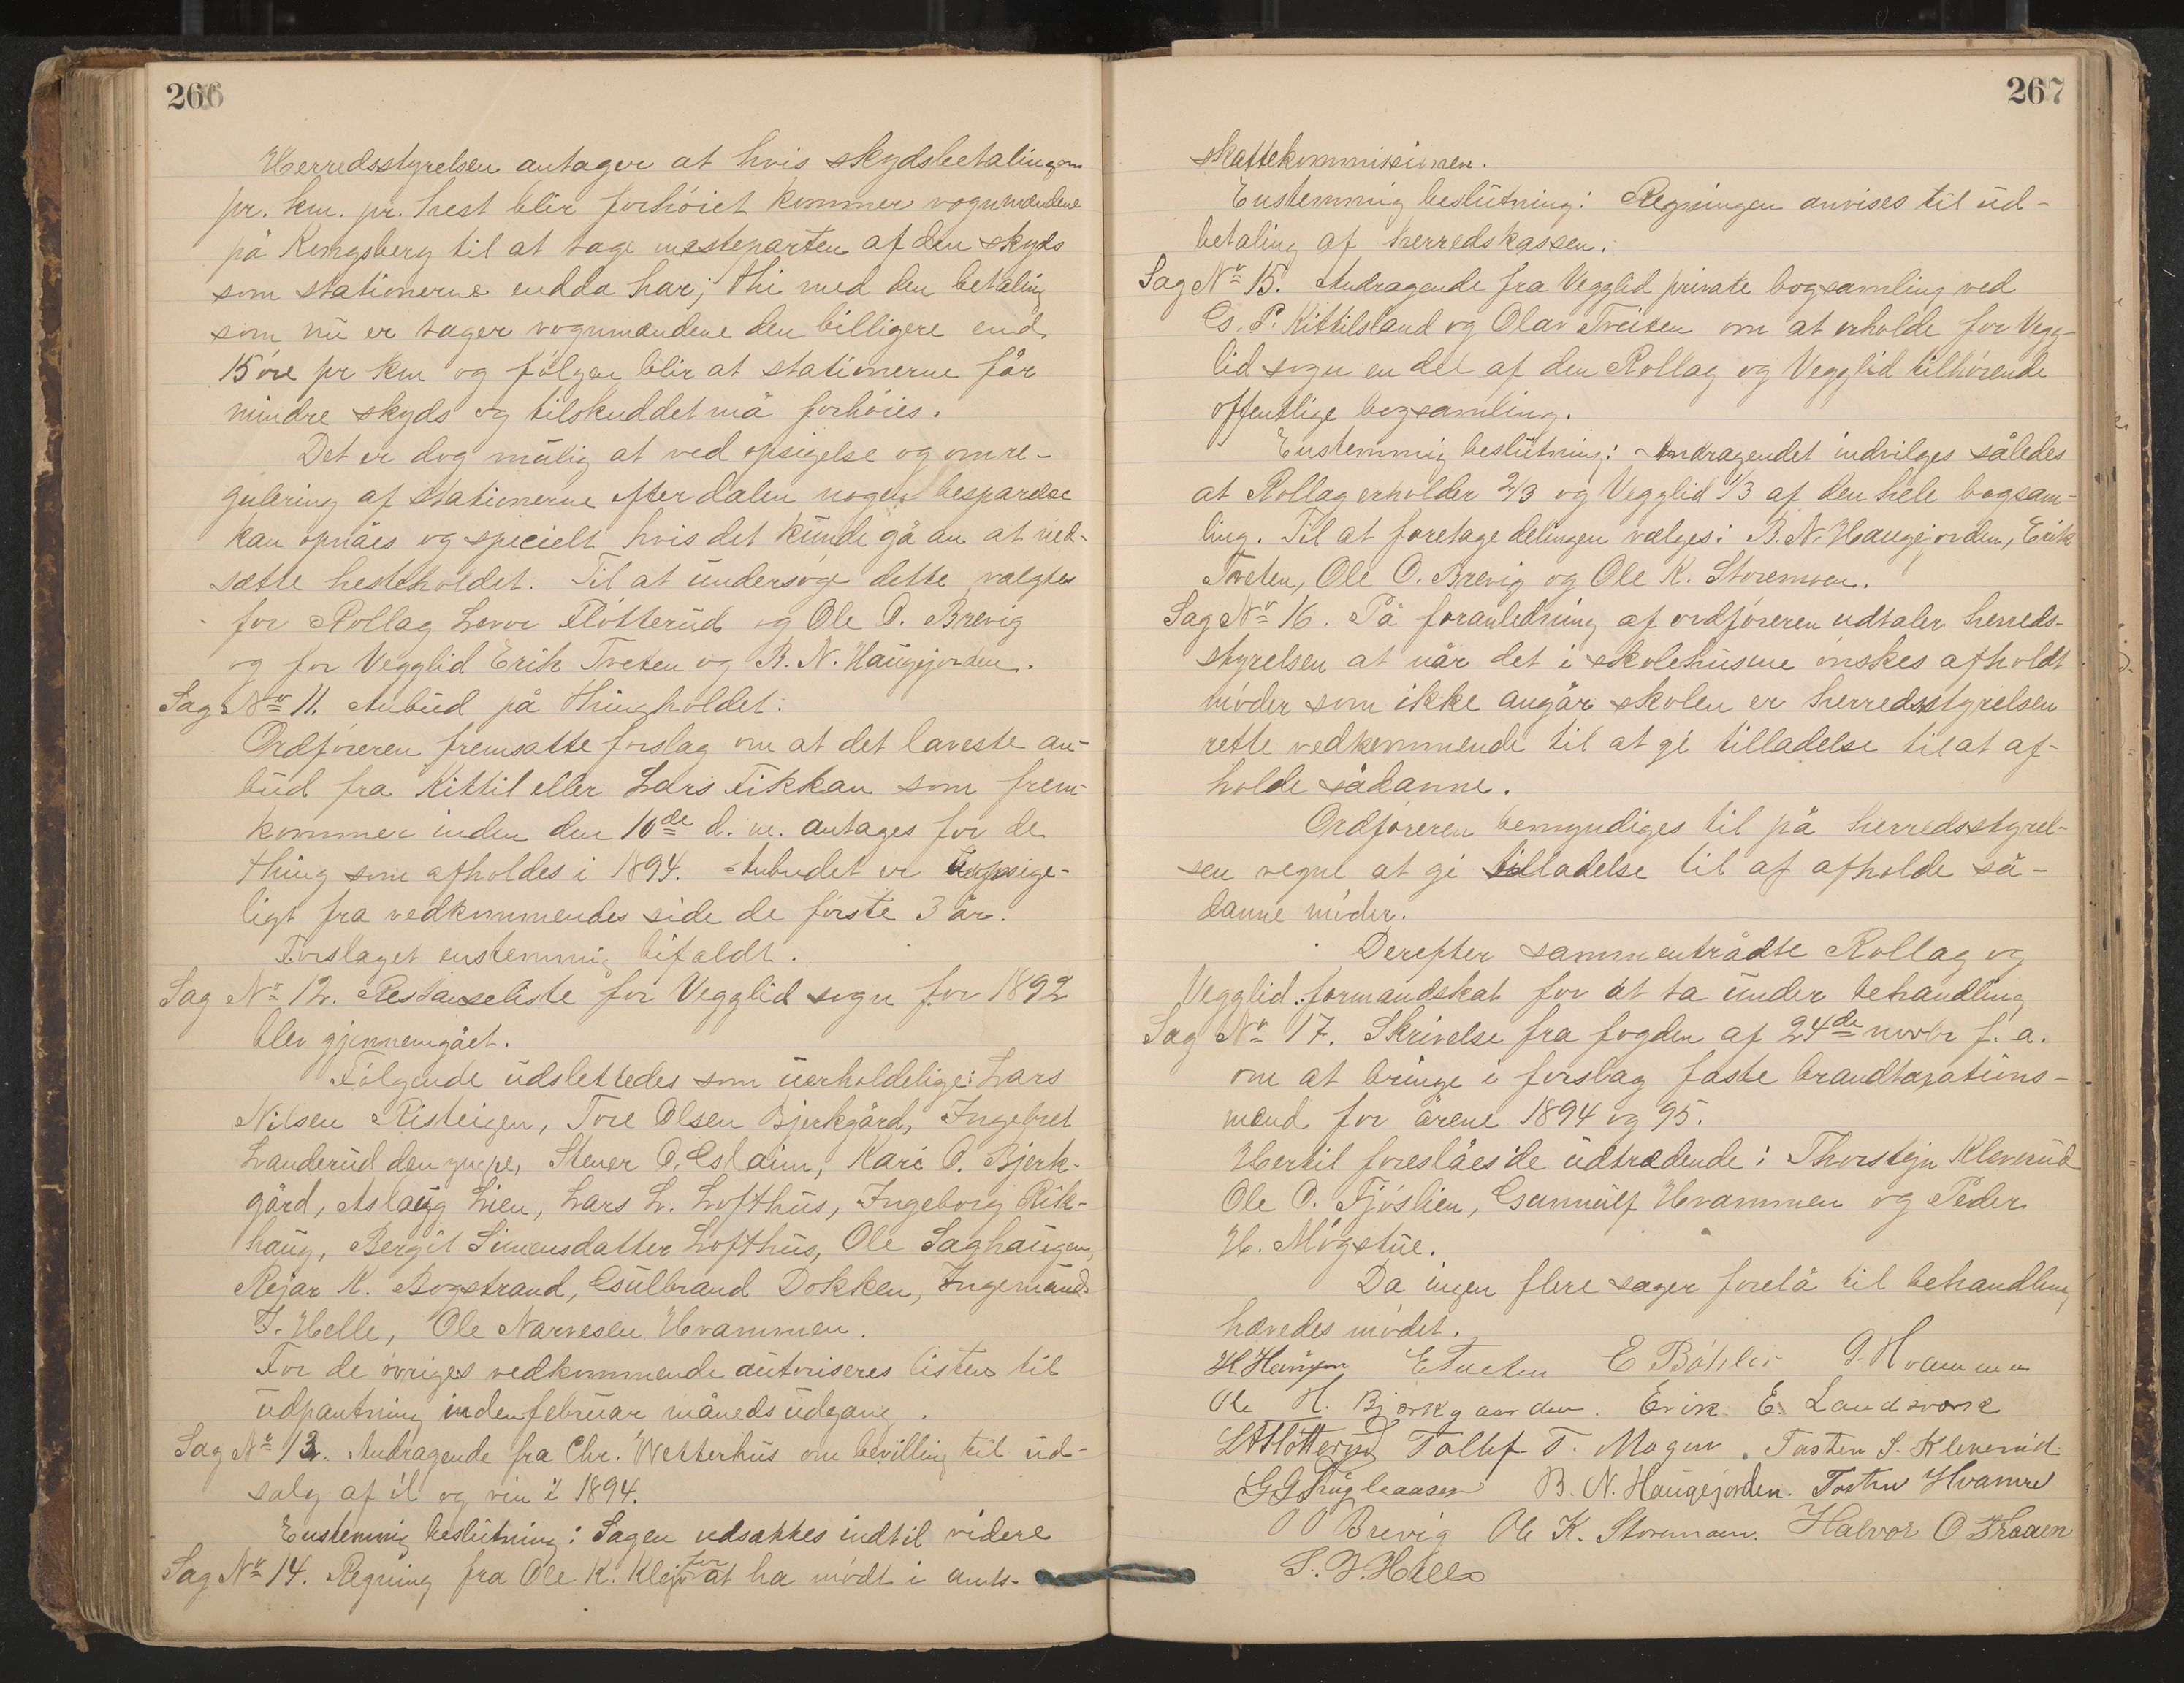 266
Herredsstyrelsen antager at hvis skydsbetalingen
pr. km. pr. hest blir forhöiet kommer vognmændene
på Kongsberg til at tage mesteparten af den skyds
som stationerne endda har; thi med den betaling
som nu er tager vognmændene den billigere end
15 öre pr km og fölgen blir at stationerne får
mindre skyds og tilskuddet må forhöies.
Det er dog mulig at ved opsigelse og omre-
gulering af stationerne efter dalen nogen besparelse
kan opnåes og specielt hvis det kunde gå an at ned-
sætte hesteholdet. Til at undersöge dette valgtes
for Rollag Levor Flötterud og Ole O. Brevig
og for Vegglid Erik Tveten og B. N. Haugejorden.
Sag No 11. Anbud på thingholdet:
Ordföreren fremsatte forslag om at det laveste an-
bud fra Kittil eller Lars Fikkan som frem-
kommer inden den 10de d. m. antages for de
thing som afholdes i 1894. Anbudet er uopsige-
ligt fra vedkommendes side de förste 3 år.
Forslaget enstemmig bifaldt.
Sag No 12. Restanseliste for Vegglid sogn for 1892
blev gjennemgået.
Fölgende udslettedes som uerholdelige: Lars
Nilsen Risteigen, Tore Olsen Bjerkgård, Ingebret
Landerud den yngre, Stener O. Eslaim, Kari O. Bjerk-
gård, Aslaug Lien, Lars L. Lofthus, Ingeborg Rik-
haug, Bergit Simensdatter Lofthus, Ole Saghaugen,
Rejar K. Bogstrand, Gulbrand Dokken, Ingemund
F. Helle, Ole Narvesen Hvammen.
For de övriges vedkommende autoriseres listen til
udpantning inden februar måneds udgang.
Sag No 13. Andragende fra Chr. Wetterhus om bevilling til ud-
salg af öl og vin i 1894.
Enstemmig beslutning: Sagen udsættes indtil videre
Sag No 14. Regning fra Ole K. Klejo for at ha mödt i amts-
267
skattekommissionen.
Enstemmig beslutning: Regningen anvises til ud-
betaling af herredskassen.
Sag No 15. Andragende fra Vegglid private bogsamling ved
G. P. Kittilsland og Olav Tveiten om at erholde for Vegg-
lid sogn en del af den Rollag og Vegglid tilhörende
offentlige bogsamling.
Enstemmig beslutning: Andragendet indvilges således
at Rollag erholder 2/3 og Vegglid 1/3 af den hele bogsam-
ling. Til at foretage delingen vælges: B. N. Haugejorden, Erik
Tveten, Ole O. Brevig og Ole K. Storemoen.
Sag No 16. På foranledning af ordföreren udtaler herreds-
styrelsen at når det i skolehusene önskes afholdt
möder som ikke angår skolen er herredsstyrelsen
rette vedkommende til at gi tilladelse til at af-
holde sådanne.
Ordföreren bemyndiges til på herredsstyrel-
sen vegne at gi tilladelse til af afholde så-
danne möder.
Derefter sammentrådte Rollag og
Vegglid formandskat for at ta under behandling
Sag No 17. Skrivelse fra fogden af 24de novbr f. a.
om at bringe i forslag faste brandtaxations-
mænd for årene 1894 og 95.
Hertil foreslåes de udtrædende: Thorstejn Kleverud
Ole O. Fjöslien, Gunnulf Hvammen og Peder
H. Mögstue.
Da ingen flere sager forelå til behandling
hævedes mödet.
H Haugen E Tveten E Böhler G. Hvammen
Ole H. Bjerkgaarden. Erik E. Landsverk
L A Flötterud Tollef T. Mogen. Tosten S. Kleverud.
B. N. Haugejorden. Torsten Hvamre
O O Brevig Ole K. Storemoen. Halvor O Fraaen